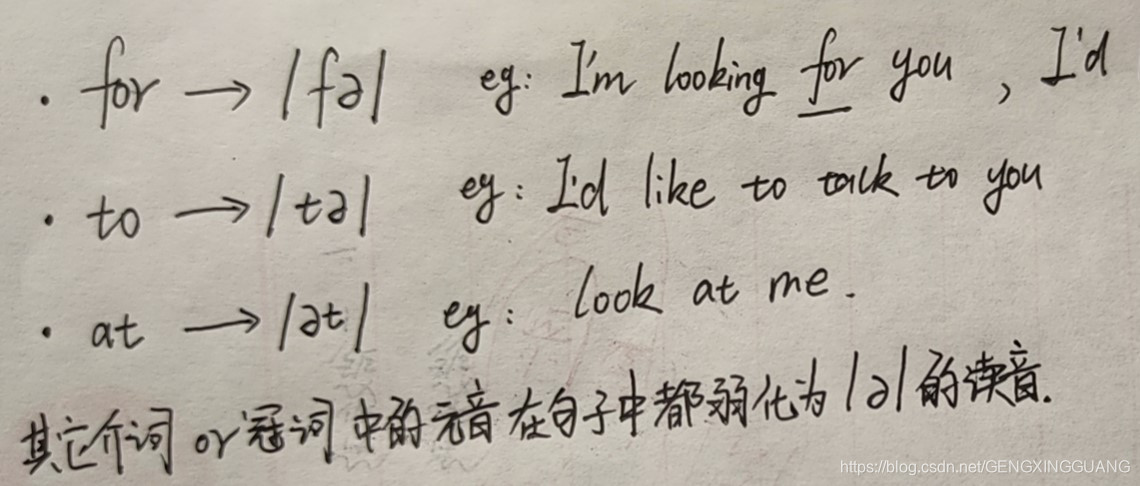 · for → /fə/ eg: I'm looking for you , I'd
· to → /tə/ eg: I'd like to talk to you
· at → /ət/ eg: look at me.
其它介词 or 冠词 中的元音在句子中都弱化为 /ə/ 的读音.
https://blog.csdn.net/GENGXINGGUANG